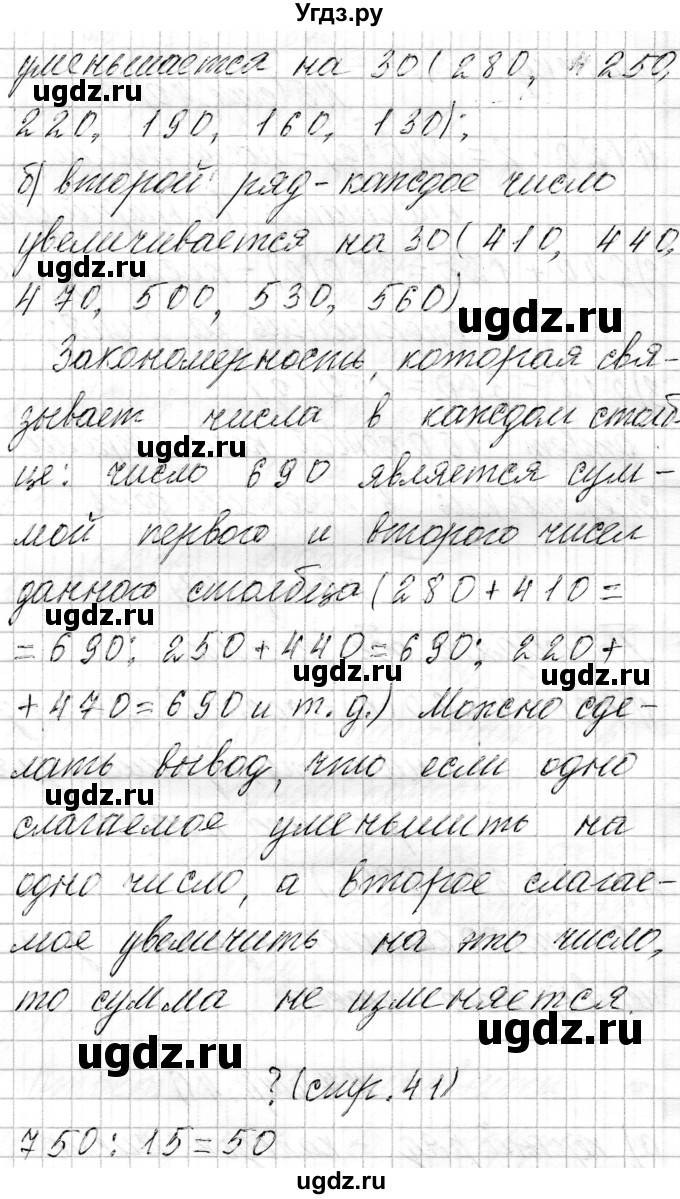 Угдз.ру
уменьшается на 30 (280, 250,
ugdz.ru
220, 190, 160, 130);
б) второй ряд - каждое число
увеличивается на 30 (410, 440,
ugdz.ru
470, 500, 530, 560)
ugdz.ru
Закономерность, которая свя-
зывает числа в каждом столб-
ugdz.ru
це: число 690 является сум-
мой первого и второго чисел
данного столбца (280 + 410 =
ugdz.ru
= 690; 250 + 440 = 690; 220 +
ugdz.ru
+ 470 = 690 и т. д.) Можно сде-
лать вывод, что если одно
ugdz.ru
слагаемое уменьшить на
одно число, а второе слагае-
мое увеличить на это число,
то сумма не изменяется.
ugdz.ru
ugdz.ru
? (стр. 41)
750 : 15 = 50
ugdz.ru